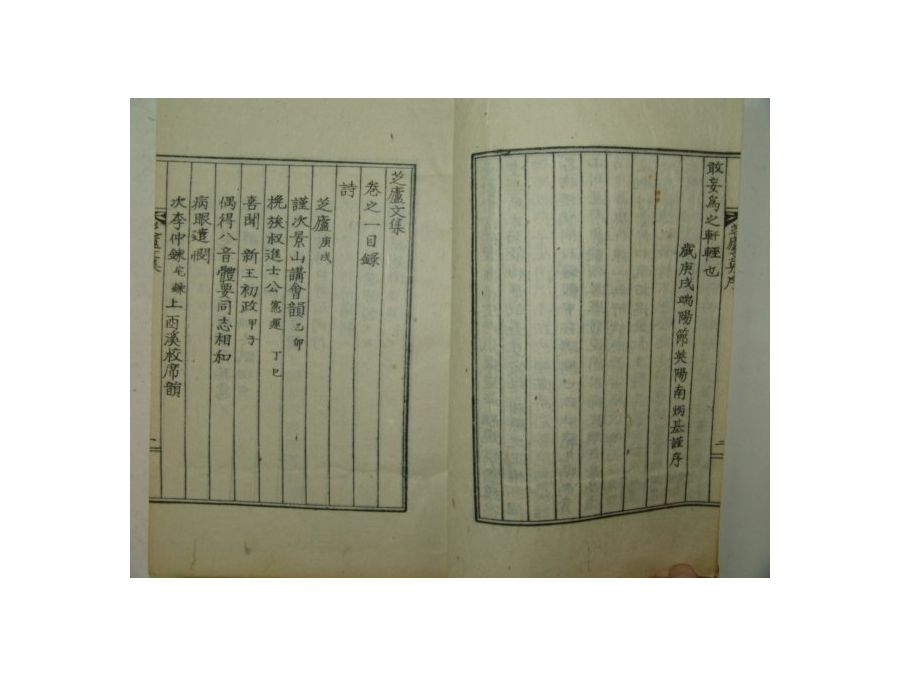 敢妄爲之軒輊也
歲庚戌端陽節英陽南炳基謹序
芝廬文集序
二
芝廬文集
卷之一目錄
詩
芝廬 庚戌
謹次景山講會韻 乙卯
挽族叔進士公 憲運 丁巳
喜聞 新王初政 甲子
偶得八音體要同志相和
病眼遣悶
次李仲鍊 宅鍊 上酉溪校席韻
芝廬文集
一